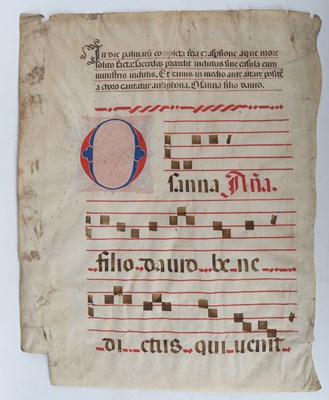 In die palmarū completa tercia ⁊ aspsione aque more
solito facta: sacerdos procedit indutus sine casula cum
ministris indutis. Et ramis in medio ante altare positis
a choro cantatur antiphona. Osanna filio dauid.
O
sanna Aña.
filio dauid be ne
di ctus qui uenit